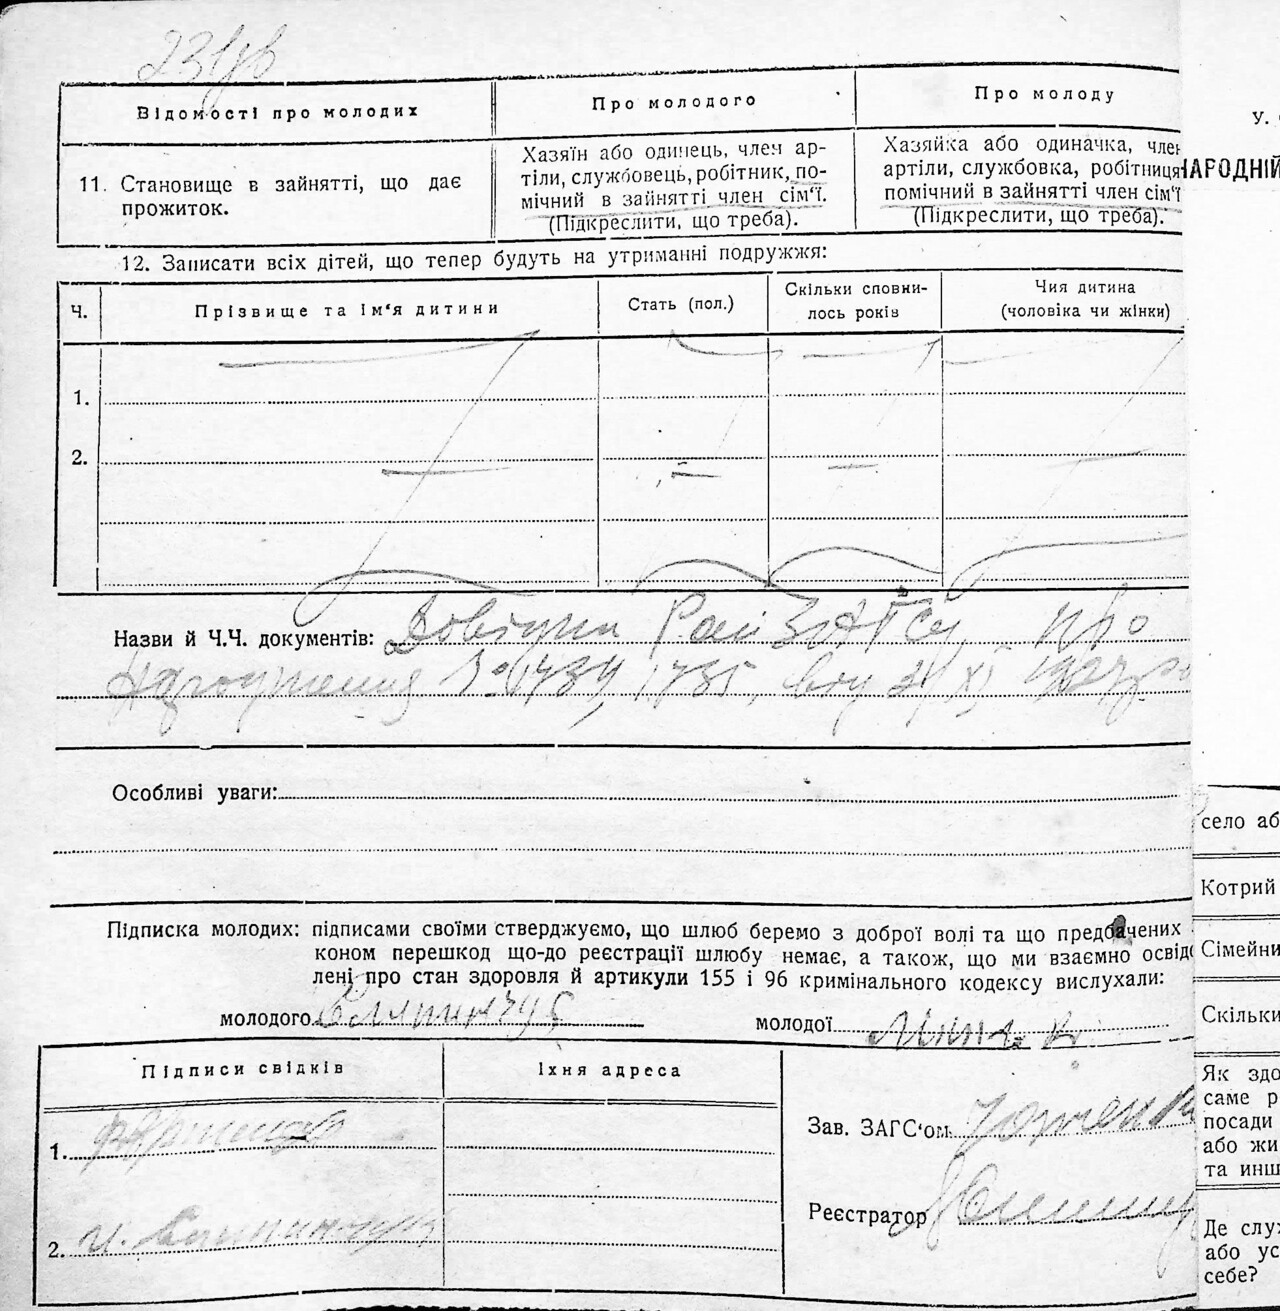 Відомості про молодих
Про молодого
Про молоду
У.
11. Становище в зайнятті, що дає
прожиток.
Хазяїн або одинець, член ар-
тіли, службовець, робітник, по-
мічний в зайнятті член сім'ї.
(Підкреслити, що треба).
Хазяйка або одиначка, член
артіли, службовка, робітниця
помічний в зайнятті член сім'ї
(Підкреслити, що треба).
НАРОДНІЙ
12. Записати всіх дітей, що тепер будуть на утриманні подружжя:
Ч.
Прізвище та ім'я дитини
Стать (пол.)
Скільки сповни-
лось років
Чия дитина
(чоловіка чи жінки)
1.
2.
Назви й Ч.Ч. документів: Довідки Рай ЗАГСу про
1734, 1735, 1927
Особливі уваги:
Підписка молодих: підписами своїми стверджуємо, що шлюб беремо з доброї волі та що предбачених
коном перешкод що-до реєстрації шлюбу немає, а також, що ми взаємно освідо
лені про стан здоровля й артикули 155 і 96 кримінального кодексу вислухали:
молодого
молодої
Підписи свідків
Їхня адреса
1.
2.
Зав. ЗАГС'ом
Реєстратор
село аб
Котрий
Сімейни
Скільки
Як здо
саме р
посади
або жи
та инш
Де служ
або ус
себе?